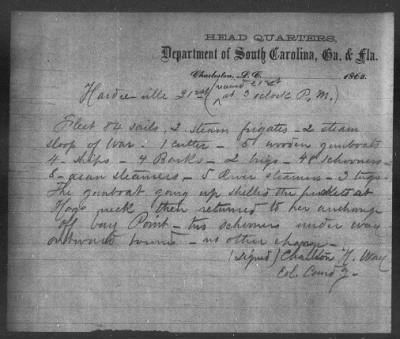 HEAD QUARTERS,
Department of South Carolina, Ga. & Fla.
Charleston, S. C. 186
Hardeeville 21st (received 21st
at 3 o'clock P.M.)
Fleet 84 sails, 2 steam frigates - 2 steam
sloop of War. 1 cutter - 5 wooden gunboats
4 - ships - 4 Barks - 2 brigs - schooners -
ocean steamers - 5 River steamers - 3 tugs -
The gunboat going up shelled the pickets at
Hogs neck then returned to her anchorage
off bay Point - two schooners under way
outwards bound - no other change -
(signed) Charlton H. Way
Col. Comd'g.